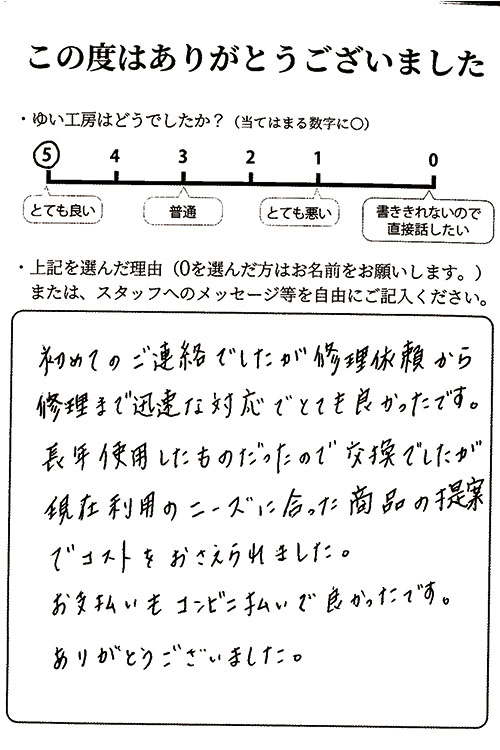 この度はありがとうございました
・ゆい工房はどうでしたか？（当てはまる数字に〇）
5 4 3 2 1 0
とても良い 普通 とても悪い 書ききれないので
直接話したい
・上記を選んだ理由（0を選んだ方はお名前をお願いします。）
または、スタッフへのメッセージ等を自由にご記入ください。
初めてのご連絡でしたが修理依頼から
修理まで迅速な対応でとても良かったです。
長年使用したものだったので交換でしたが
現在利用のニーズに合った商品の提案
でコストをおさえられました。
お支払いもコンビニ払いで良かったです。
ありがとうございました。